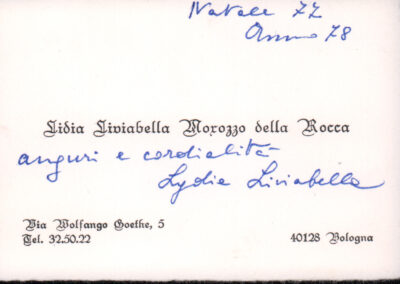 Natale 77
Anno 78
Lidia Liviabella Morozzo della Rocca
auguri e cordialità
Lydia Liviabella
Via Wolfango Goethe, 5
Tel. 32.50.22
40128 Bologna